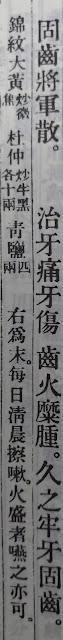 固齒將軍散。　治牙痛牙傷齒火糜腫。久之牢牙固齒。
錦紋大黃炒微焦 杜仲炒半黑各十兩 靑鹽四兩　右為末每日清晨擦嗽。火盛者嚥之亦可。